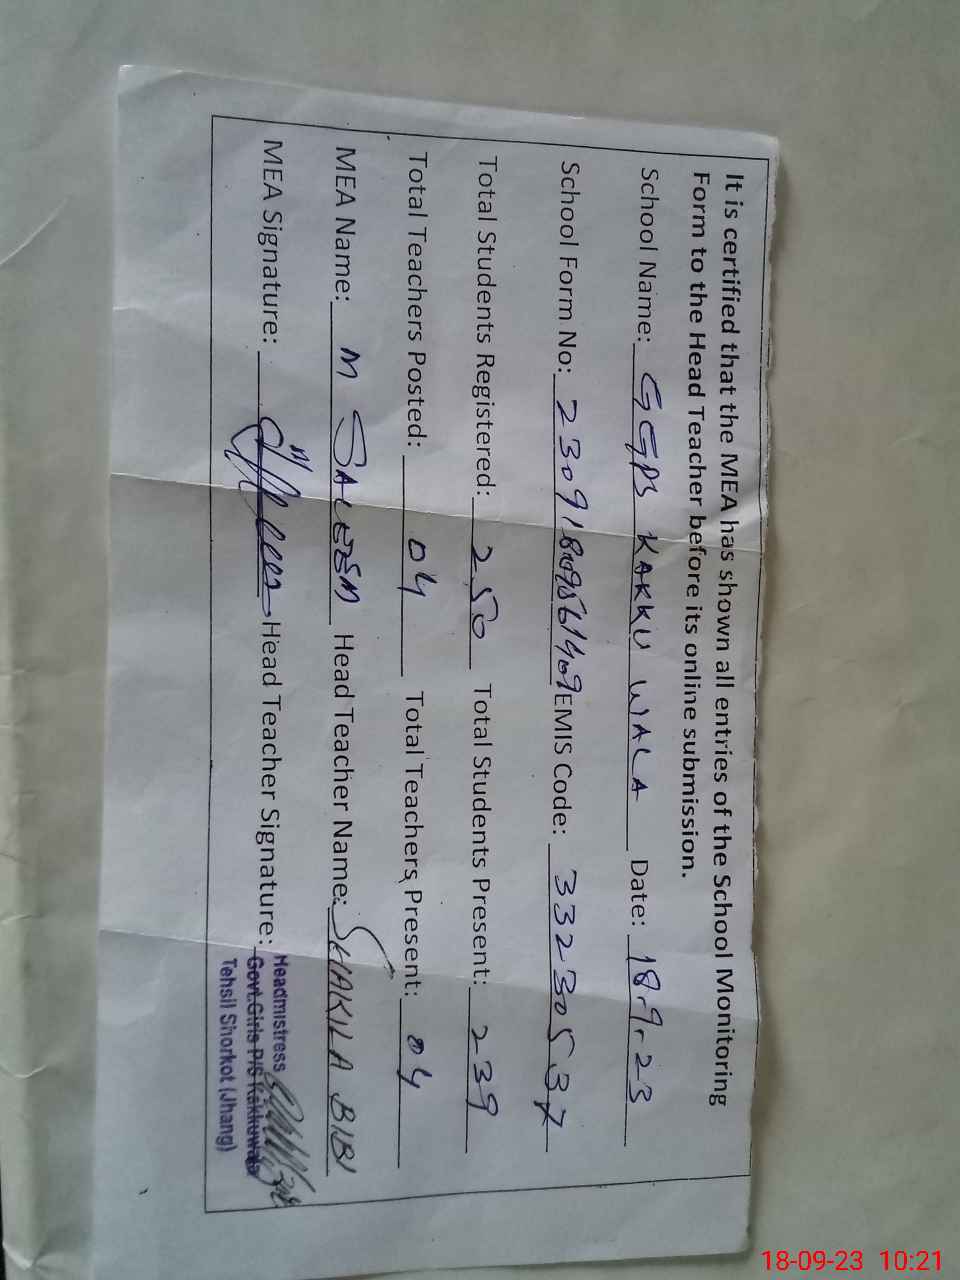 It is certified that the MEA has shown all entries of the School Monitoring
Form to the Head Teacher before its online submission.
School Name: GGPS KAKKU WALA Date: 18-9-23
School Form No: EMIS Code: 33230537
Total Students Registered: 250 Total Students Present: 239
Total Teachers Posted: 04 Total Teachers Present: 04
MEA Name: M SALEEM Head Teacher Name: SHAKILA BIBI
MEA Signature: Head Teacher Signature:
Headmistress
Govt.Girls P/S Kakkuwala
Tehsil Shorkot (Jhang)
18-09-23 10:21